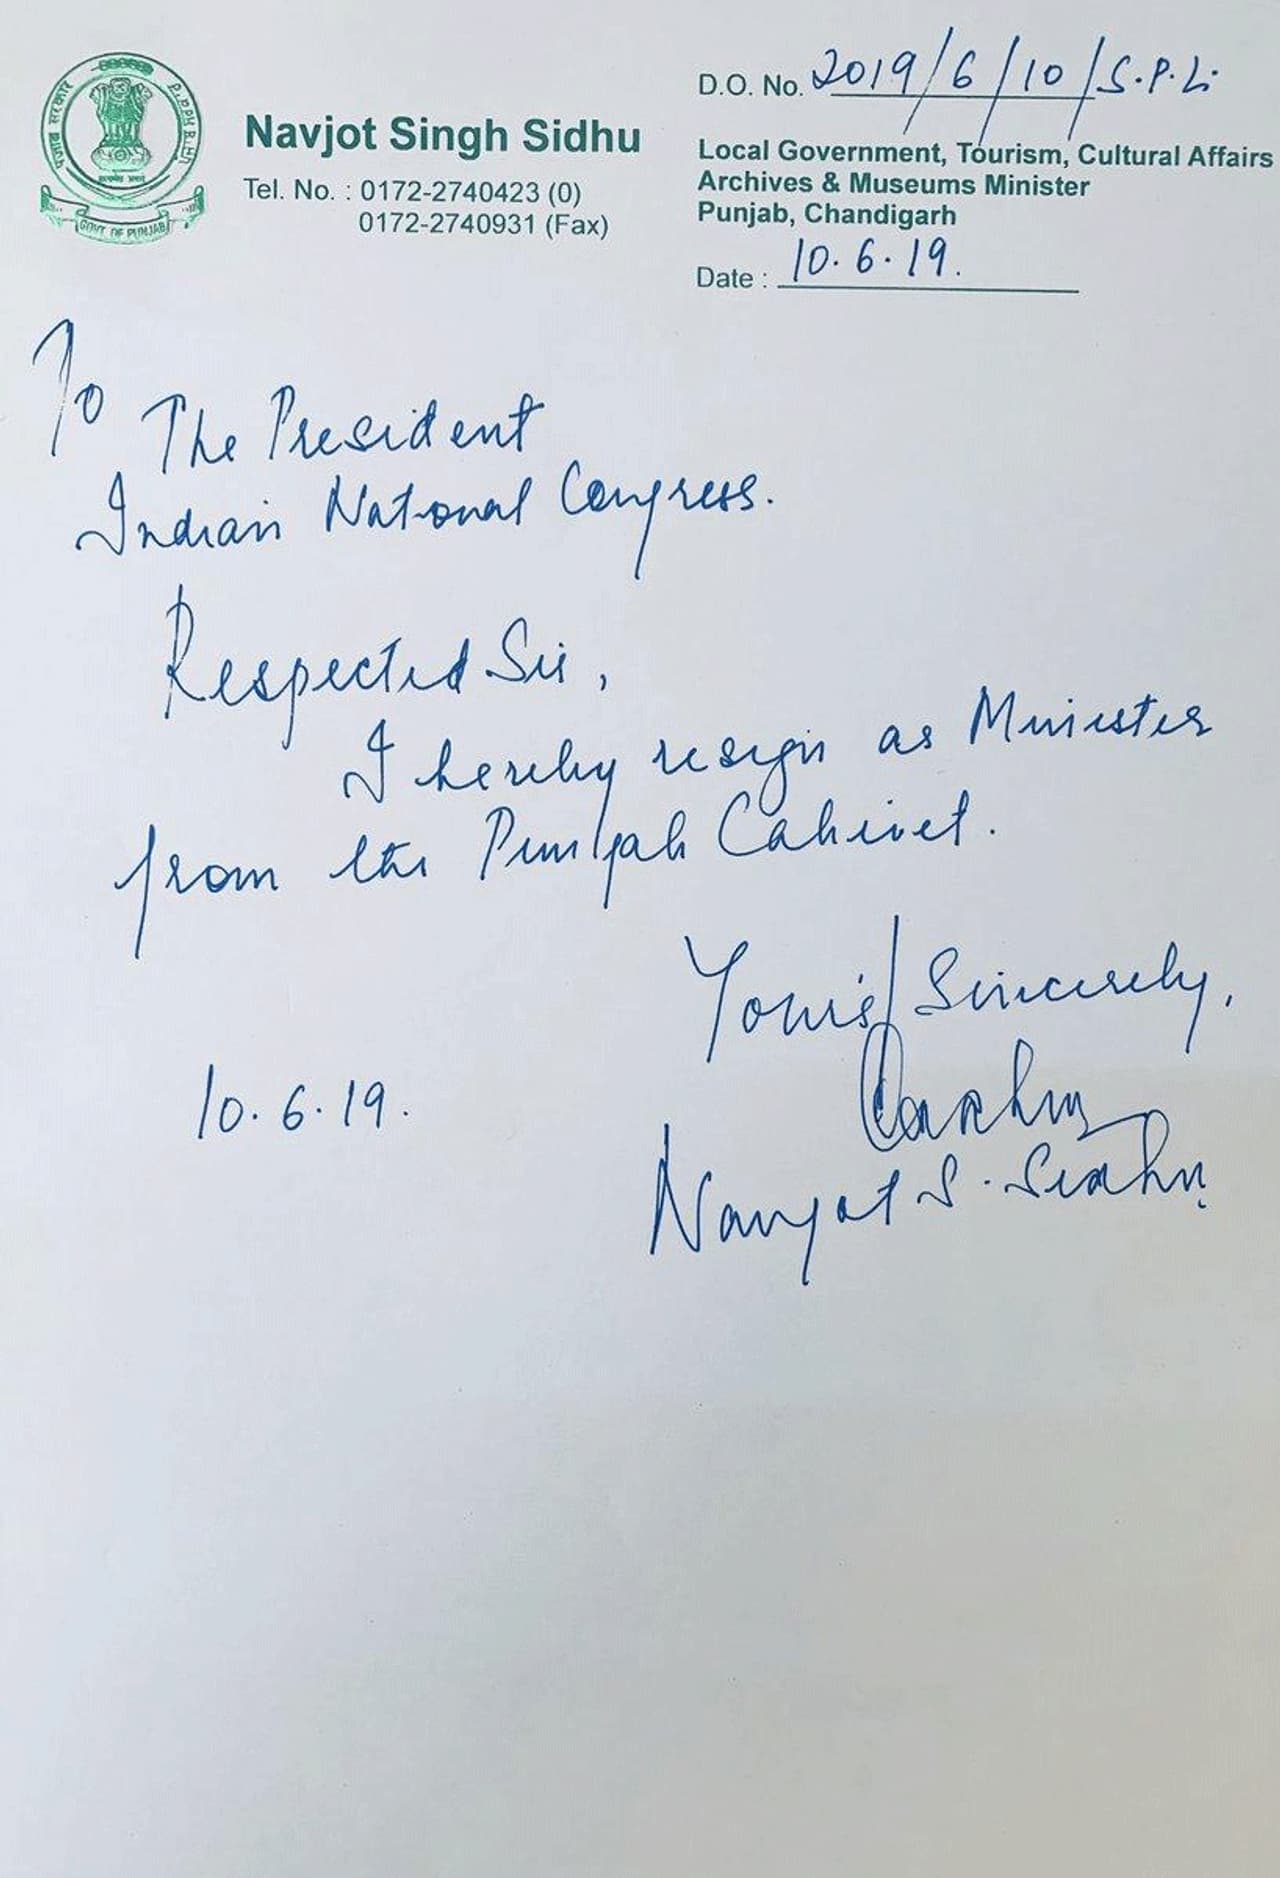 D.O. No. 2019/6/10/S.P.Li
Navjot Singh Sidhu
Tel. No. : 0172-2740423 (0)
0172-2740931 (Fax)
Local Government, Tourism, Cultural Affairs
Archives & Museums Minister
Punjab, Chandigarh
Date : 10.6.19.
GOVT. OF PUNJAB
To
The President
Indian National Congress.
Respected Sir,
I hereby resign as Minister
from the Punjab Cabinet.
Yours Sincerely,
10.6.19.
Navjot S. Sidhu